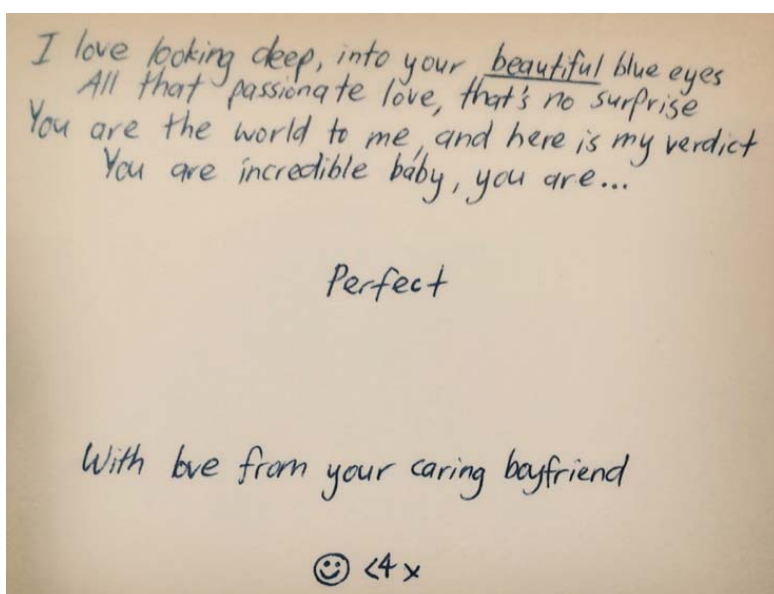 I love looking deep, into your beautiful blue eyes
All that passionate love, that's no surprise
You are the world to me, and here is my verdict
You are incredible baby, you are...
Perfect
With love from your caring boyfriend
☺ <4 x